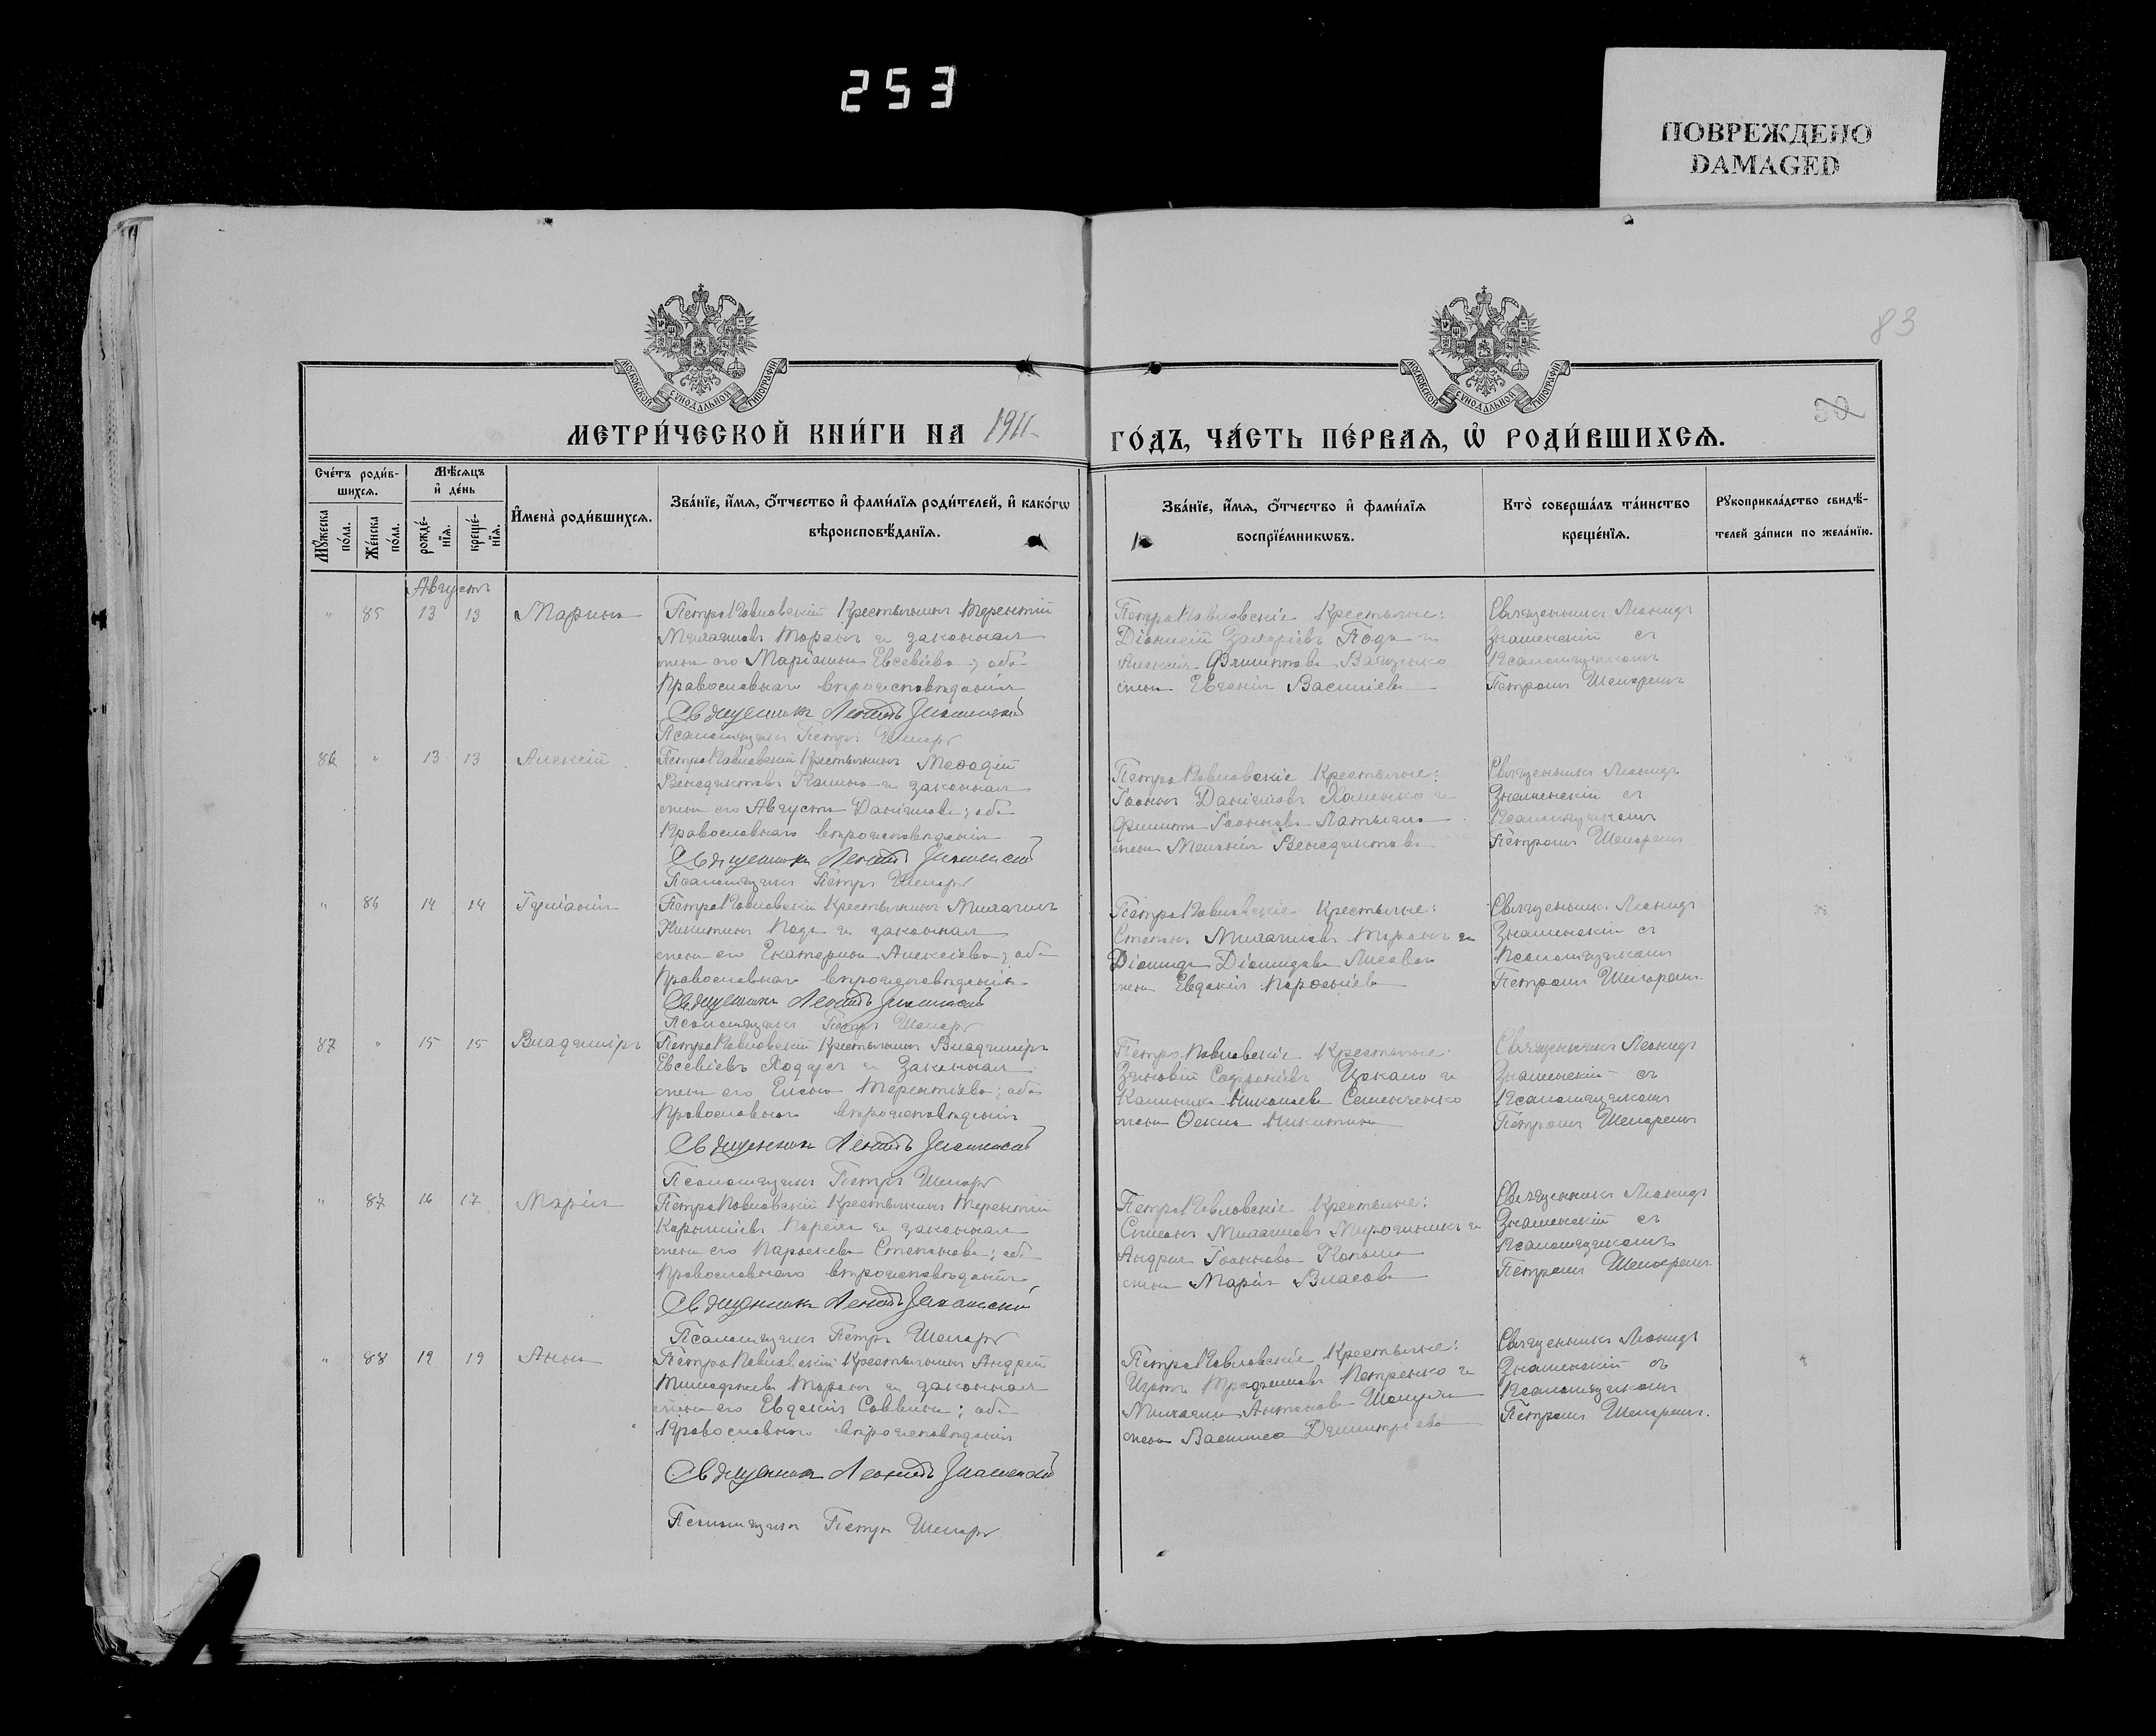 253
ПОВРЕЖДЕНО
DAMAGED
83
МОСКОВСКОЙ СУНОДАЛЬНОЙ ТИПОГРАФІИ
МОСКОВСКОЙ СУНОДАЛЬНОЙ ТИПОГРАФІИ
МЕТРИ́ЧЕСКОЙ КНИ́ГИ НА 1911
ГО́ДЪ, ЧА́СТЬ ПЕ́РВАѦ, Ѡ҆ РОДИ́ВШИХСѦ.
Сче́тъ роди́в-
шихсѧ.
Мѣ́сѧцъ
и҆ де́нь
Мꙋ́жеска
по́ла.
Же́нска
по́ла.
рожде́-
нїѧ.
креще́-
нїѧ.
И҆мена̀ роди́вшихсѧ.
Зва́нїе, и҆́мѧ, ѻ҆́тчество и҆ фами́лїѧ роди́телей, и҆ како́гѡ
вѣроисповѣ́данїѧ.
Зва́нїе, и҆́мѧ, ѻ҆́тчество и҆ фами́лїѧ
воспрїе́мникѡвъ.
Кто̀ соверша́лъ та́инство
креще́нїѧ.
Рꙋкоприкла́дство свидѣ́-
телей за́писи по жела́нїю.
Августъ
" 85 13 13 Марина
ПетроПавловскій Крестьянинъ Терентій
Михаиловъ Таранъ и законная
жена его Маріамна Евсевіева; оба
Православнаго вѣроисповѣданія
Священникъ Леонидъ Знаменскій
Псаломщикъ Петръ Шепаръ
ПетроПавловскіе Крестьяне:
Діонисій Захаріевъ Кода и
Филиппова Ващенко
жена Евгенія Василіева
Священникъ Леонидъ
Знаменскій съ
Псаломщикомъ
Петромъ Шепаремъ
86 " 13 13 Алексій
ПетроПавловскій Крестьянинъ Меѳодій
Венедиктовъ Калина и законная
жена его Августа Даніилова; оба
Православнаго вѣроисповѣданія
Священникъ Леонидъ Знаменскій
Псаломщикъ Петръ Шепаръ
ПетроПавловскіе Крестьяне:
Іоаннъ Даніиловъ и
Филиппа Іоаннова
жена Меланія Венедиктова
Священникъ Леонидъ
Знаменскій съ
Псаломщикомъ
Петромъ Шепаремъ
" 86 14 14
ПетроПавловскій Крестьянинъ Михаилъ
Никитинъ Кода и законная
жена его Екатерина Алексіева; оба
Православнаго вѣроисповѣданія
Священникъ Леонидъ Знаменскій
Псаломщикъ Петръ Шепаръ
ПетроПавловскіе Крестьяне:
Степанъ Михаиловъ Таранъ и
Діомида Діомидова
жена Евдокія
Священникъ Леонидъ
Знаменскій съ
Псаломщикомъ
Петромъ Шепаремъ.
87 " 15 15 Владиміръ
ПетроПавловскій Крестьянинъ Владиміръ
Евсевіевъ Ходусъ и Законная
жена его Елена Терентіева; оба
Православнаго вѣроисповѣданія
Священникъ Леонидъ Знаменскій
Псаломщикъ Петръ Шепаръ
ПетроПавловскіе Крестьяне:
Зиновій Софроніевъ Цокало и
Николаева Семенченко
жена Ѳекла Никитина
Священникъ Леонидъ
Знаменскій съ
Псаломщикомъ
Петромъ Шепаремъ
" 87 16 17 Марія
ПетроПавловскій Крестьянинъ Терентій
Корниліевъ и законная
жена его Параскева Степанова; оба
Православнаго вѣроисповѣданія
Священникъ Леонидъ Знаменскій
Псаломщикъ Петръ Шепаръ
ПетроПавловскіе Крестьяне:
Симеонъ Михаиловъ Мирошникъ и
Андрея Іоаннова
жена Марія Власова
Священникъ Леонидъ
Знаменскій съ
Псаломщикомъ
Петромъ Шепаремъ
" 88 19 19 Анна
ПетроПавловскій Крестьянинъ Андрей
Таранъ и законная
жена его Евдокія Саввина; оба
Православнаго вѣроисповѣданія
Священникъ Леонидъ Знаменскій
Псаломщикъ Петръ Шепаръ
ПетроПавловскіе Крестьяне:
Петренко и
Михаила Антонова
жена Василиса Димитріева
Священникъ Леонидъ
Знаменскій съ
Псаломщикомъ
Петромъ Шепаремъ.